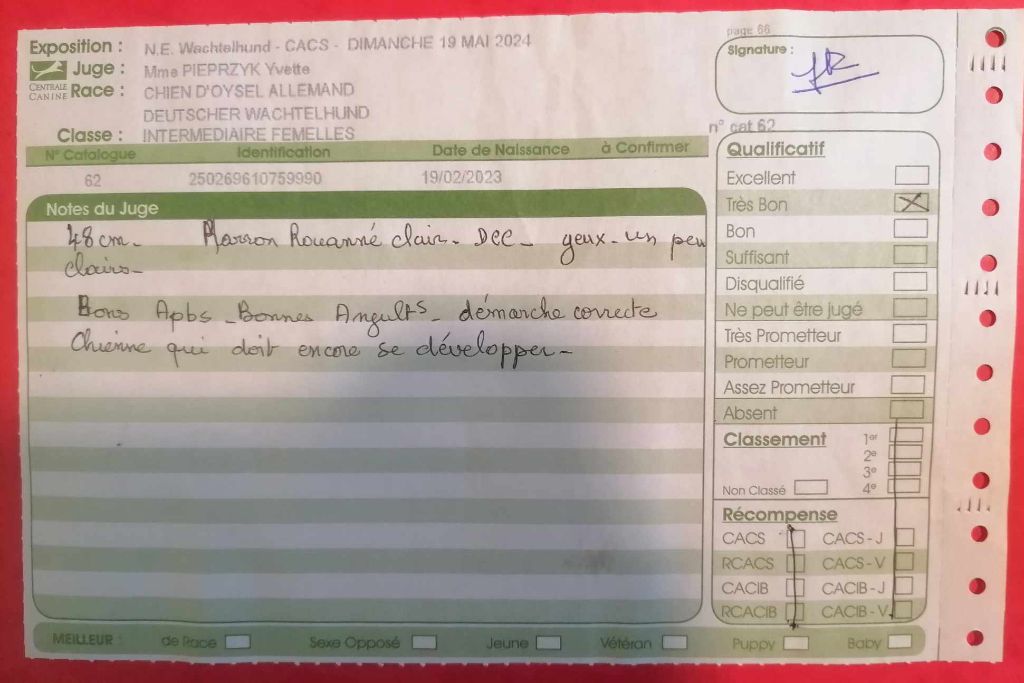 page 66
Exposition : N.E. Wachtelhund - CACS - DIMANCHE 19 MAI 2024
Signature :
Juge : Mme PIEPRZYK Yvette
CENTRALE CANINE
Race : CHIEN D'OYSEL ALLEMAND
DEUTSCHER WACHTELHUND
Classe : INTERMEDIAIRE FEMELLES
n° cat 62
N° Catalogue Identification Date de Naissance à Confirmer
62 250269610759990 19/02/2023
Notes du Juge
48 cm - Marron Rouanné clair - DCC - yeux - un peu
clairs -
Bons Apbs - Bonnes Angults - démarche correcte
Chienne qui doit encore se développer -
Qualificatif
Excellent
Très Bon X
Bon
Suffisant
Disqualifié
Ne peut être jugé
Très Prometteur
Prometteur
Assez Prometteur
Absent
Classement 1er
2e
3e
Non Classé 4e
Récompense
CACS CACS - J
RCACS CACS - V
CACIB CACIB - J
RCACIB CACIB - V
MEILLEUR : de Race Sexe Opposé Jeune Vétéran Puppy Baby